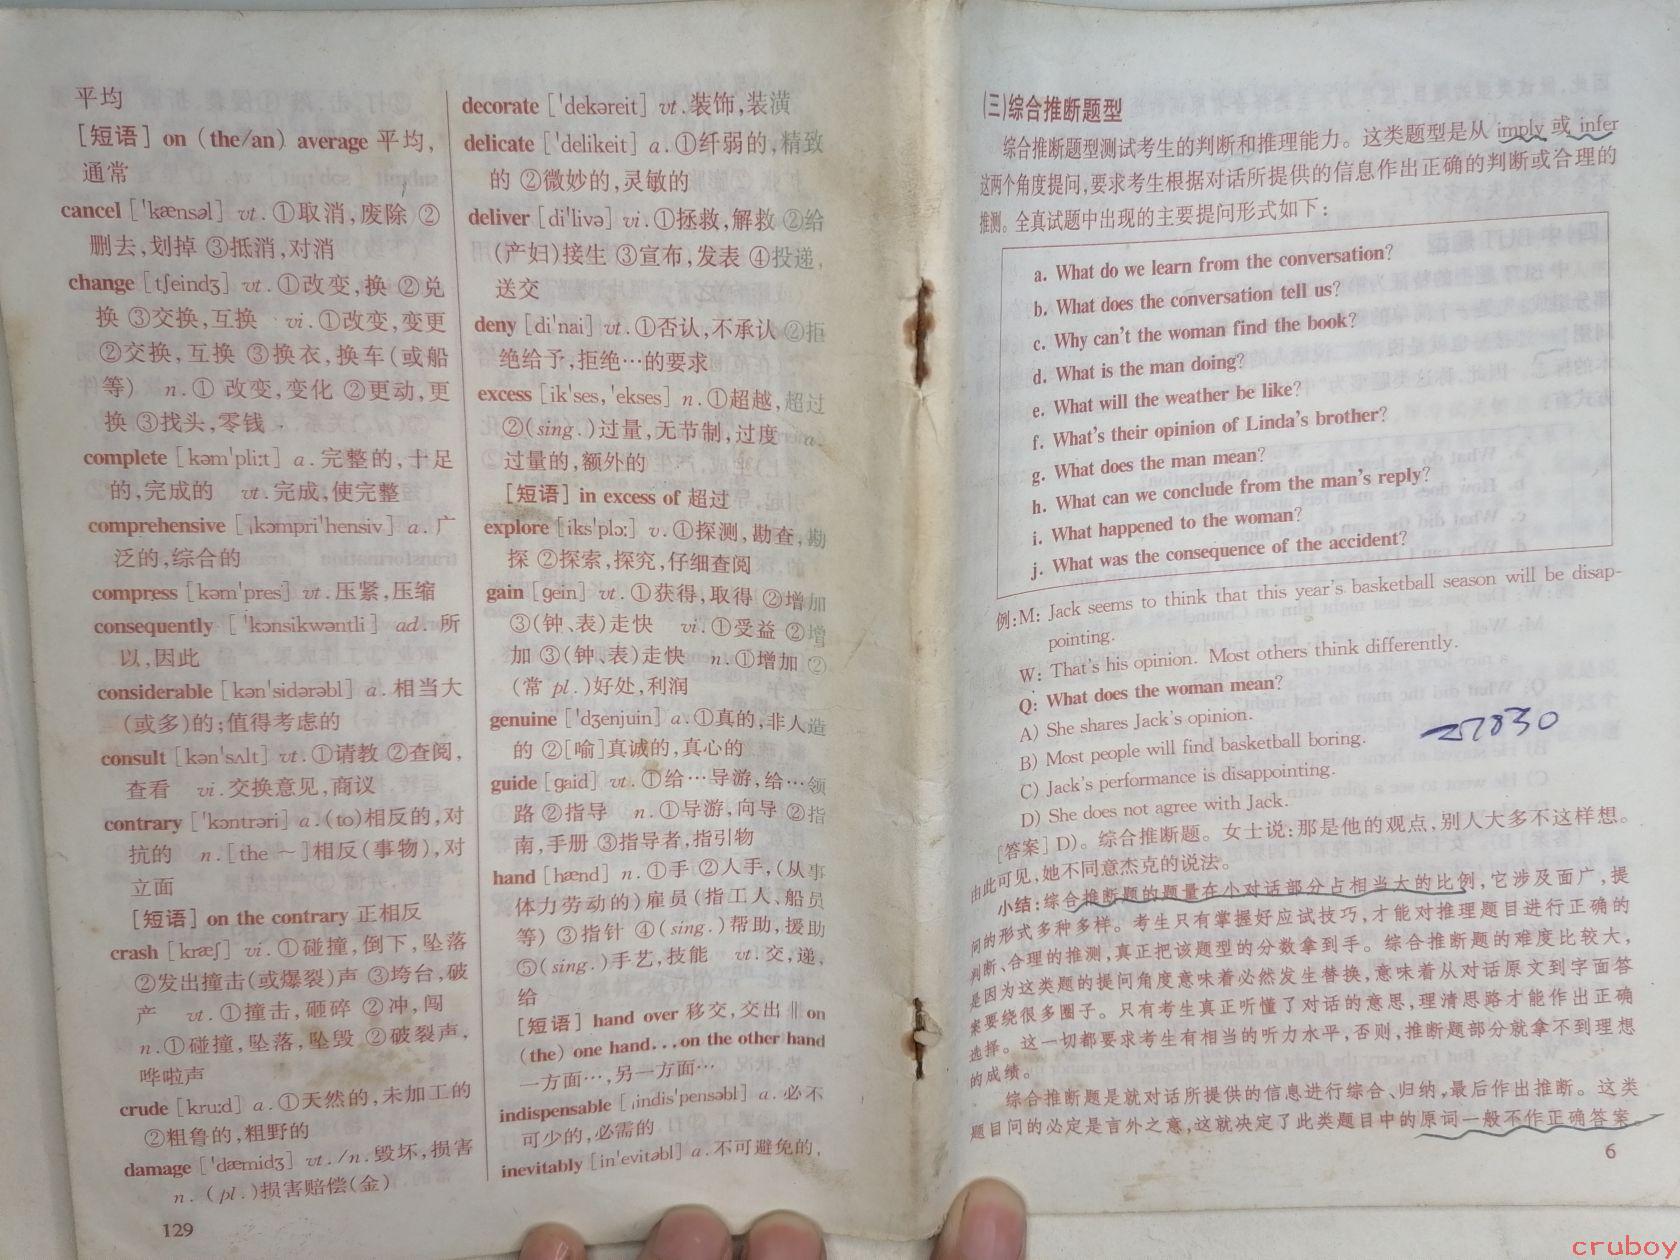 平均
[短语] on (the/an) average 平均,
通常
cancel ['kænsəl] vt.①取消,废除 ②
删去,划掉 ③抵消,对消
change [tʃeindʒ] vt.①改变,换 ②兑
换 ③交换,互换 vi.①改变,变更
②交换,互换 ③换衣,换车(或船
等) n.① 改变,变化 ②更动,更
换 ③找头,零钱
complete [kəm'pli:t] a.完整的,十足
的,完成的 vt.完成,使完整
comprehensive [ˌkəmpri'hensiv] a.广
泛的,综合的
compress [kəm'pres] vt.压紧,压缩
consequently ['kənsikwəntli] ad.所
以,因此
considerable [kən'sidərəbl] a.相当大
(或多)的;值得考虑的
consult [kən'sʌlt] vt.①请教 ②查阅,
查看 vi.交换意见,商议
contrary ['kəntrəri] a.(to)相反的,对
抗的 n.[the ~]相反(事物),对
立面
[短语] on the contrary 正相反
crash [kræʃ] vi.①碰撞,倒下,坠落
②发出撞击(或爆裂)声 ③垮台,破
产 vt.①撞击,砸碎 ②冲,闯
n.①碰撞,坠落,坠毁 ②破裂声,
哗啦声
crude [kru:d] a.①天然的,未加工的
②粗鲁的,粗野的
damage ['dæmidʒ] vt./n.毁坏,损害
n.(pl.)损害赔偿(金)
129
decorate ['dekəreit] vt.装饰,装潢
delicate ['delikeit] a.①纤弱的,精致
的 ②微妙的,灵敏的
deliver [di'livə] vi.①拯救,解救 ②给
(产妇)接生 ③宣布,发表 ④投递,
送交
deny [di'nai] vt.①否认,不承认 ②拒
绝给予,拒绝…的要求
excess [ik'ses,'ekses] n.①超越,超过
②(sing.)过量,无节制,过度 a.
过量的,额外的
[短语] in excess of 超过
explore [iks'plɔ:] v.①探测,勘查,勘
探 ②探索,探究,仔细查阅
gain [gein] vt.①获得,取得 ②增加
③(钟、表)走快 vi.①受益 ②增
加 ③(钟、表)走快 n.①增加 ②
(常 pl.)好处,利润
genuine ['dʒenjuin] a.①真的,非人造
的 ②[喻]真诚的,真心的
guide [gaid] vt.①给…导游,给…领
路 ②指导 n.①导游,向导 ②指
南,手册 ③指导者,指引物
hand [hænd] n.①手 ②人手,(从事
体力劳动的)雇员(指工人、船员
等) ③指针 ④(sing.)帮助,援助
⑤(sing.)手艺,技能 vt.交,递,
给
[短语] hand over 移交,交出 ‖ on
(the) one hand...on the other hand
一方面…,另一方面…
indispensable [ˌindis'pensəbl] a.必不
可少的,必需的
inevitably [in'evitəbl] a.不可避免的,
(三)综合推断题型
综合推断题型测试考生的判断和推理能力。这类题型是从 imply 或 infer
这两个角度提问,要求考生根据对话所提供的信息作出正确的判断或合理的
推测。全真试题中出现的主要提问形式如下:
a. What do we learn from the conversation?
b. What does the conversation tell us?
c. Why can't the woman find the book?
d. What is the man doing?
e. What will the weather be like?
f. What's their opinion of Linda's brother?
g. What does the man mean?
h. What can we conclude from the man's reply?
i. What happened to the woman?
j. What was the consequence of the accident?
例:M: Jack seems to think that this year's basketball season will be disap-
pointing.
W: That's his opinion. Most others think differently.
Q: What does the woman mean?
A) She shares Jack's opinion.
B) Most people will find basketball boring.
C) Jack's performance is disappointing.
D) She does not agree with Jack.
[答案] D)。综合推断题。女士说:那是他的观点,别人大多不这样想。
由此可见,她不同意杰克的说法。
小结:综合推断题的题量在小对话部分占相当大的比例,它涉及面广,提
问的形式多种多样。考生只有掌握好应试技巧,才能对推理题目进行正确的
判断、合理的推测,真正把该题型的分数拿到手。综合推断题的难度比较大,
是因为这类题的提问角度意味着必然发生替换,意味着从对话原文到字面答
案要绕很多圈子。只有考生真正听懂了对话的意思,理清思路才能作出正确
选择。这一切都要求考生有相当的听力水平,否则,推断题部分就拿不到理想
的成绩。
综合推断题是就对话所提供的信息进行综合、归纳,最后作出推断。这类
题目问的必定是言外之意,这就决定了此类题目中的原词一般不作正确答案。
6
cruboy